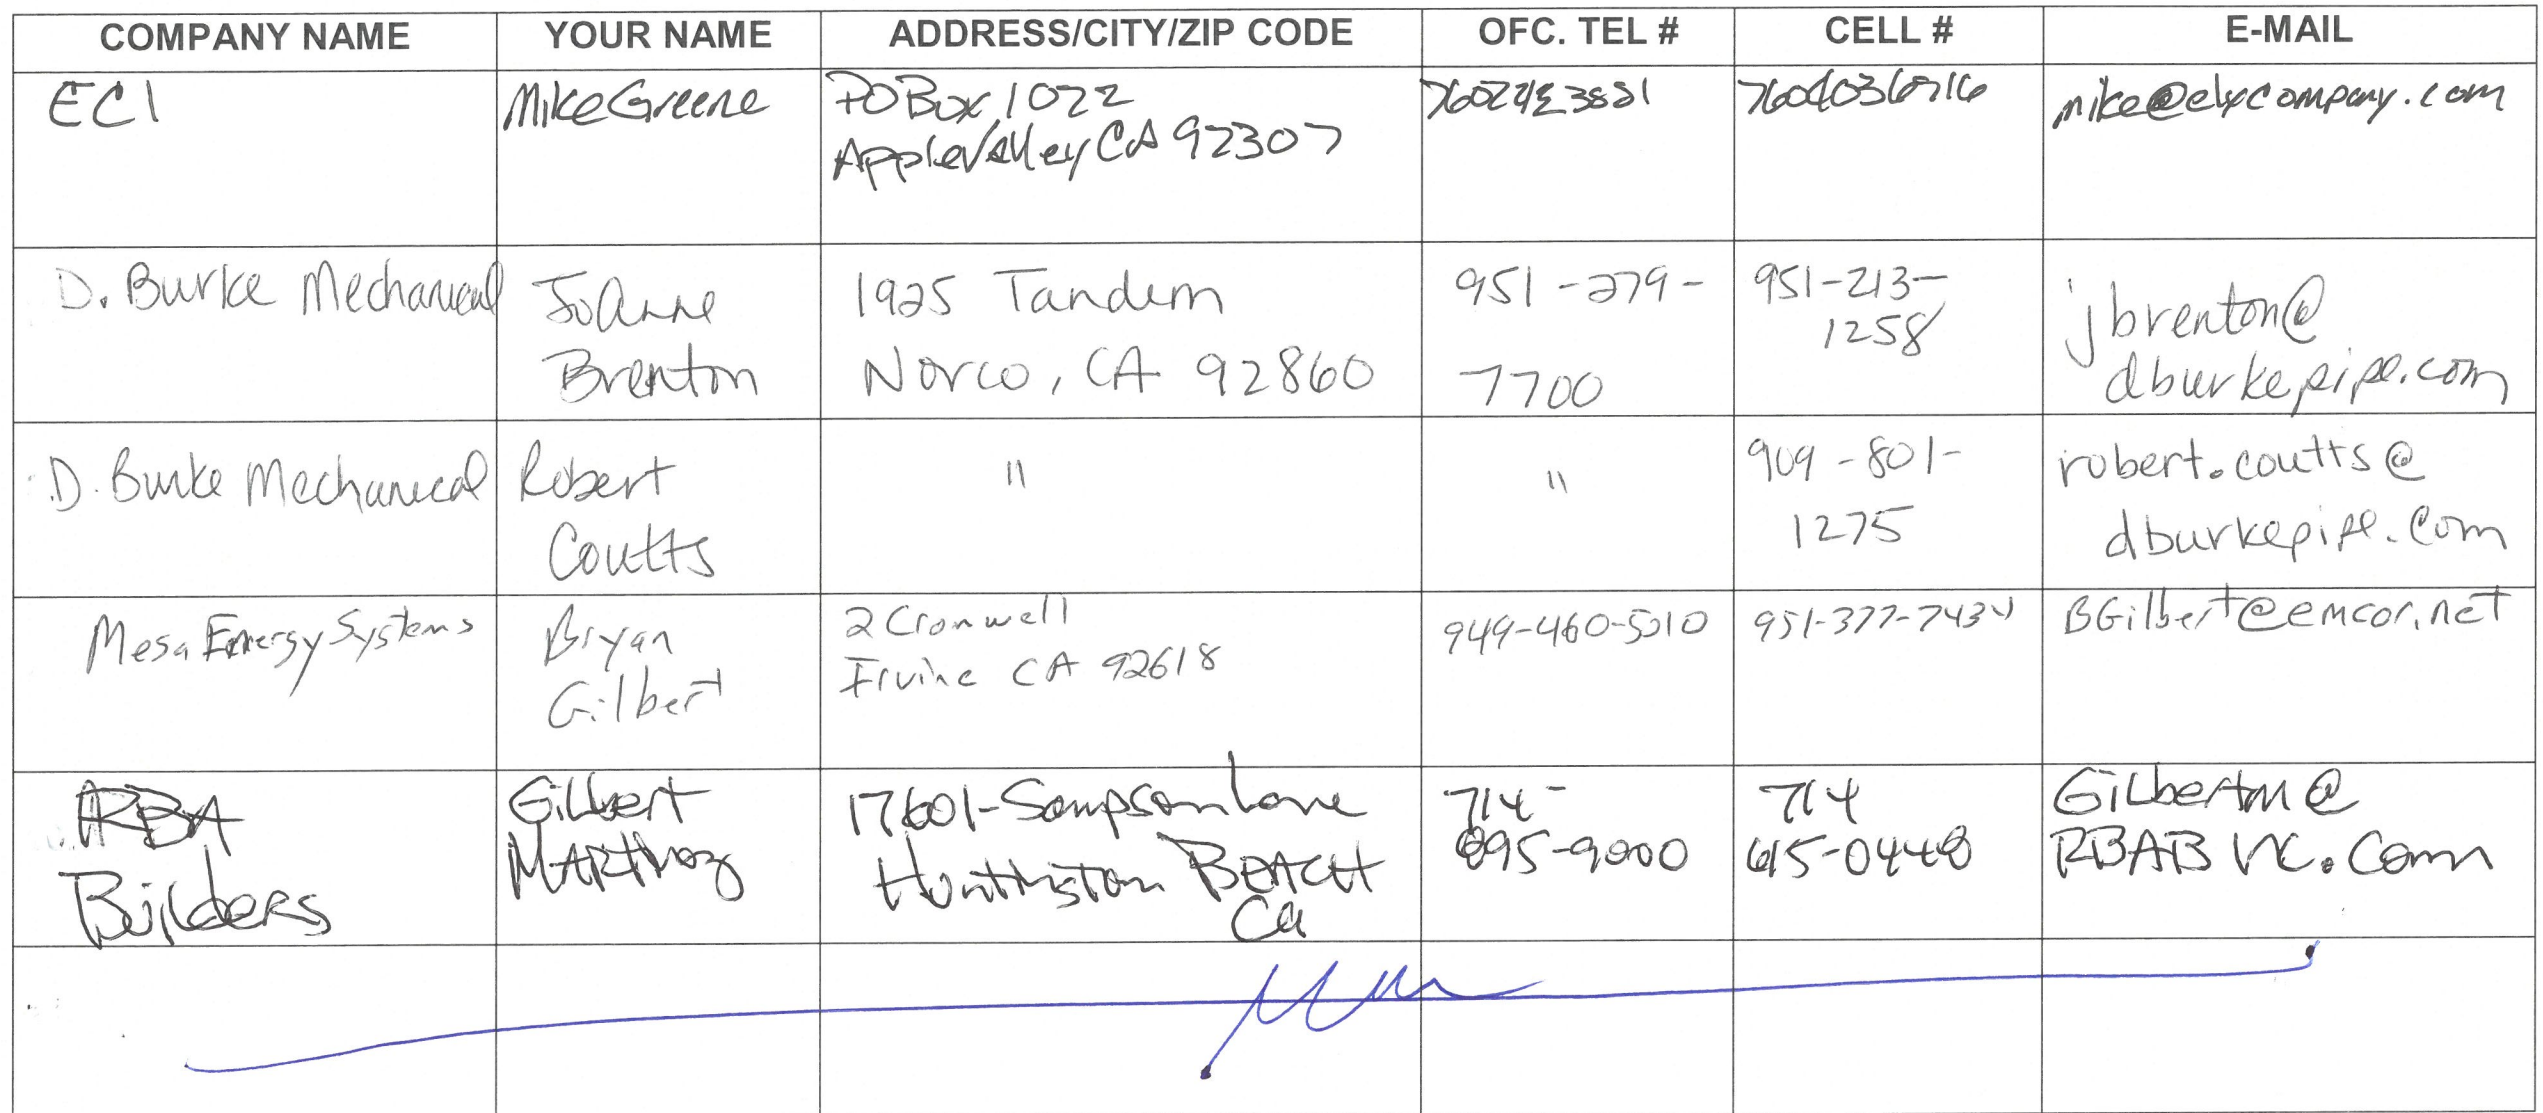 COMPANY NAME YOUR NAME ADDRESS/CITY/ZIP CODE OFC. TEL # CELL # E-MAIL
ECI
Mike Greene
PO Box 1022
Apple Valley CA 92307
D. Burke Mechanical
JoAnne
Brenton
1925 Tandem
Norco, CA 92860
951-279-
7700
951-213-
1258
jbrenton@
dburkepipe.com
D. Burke Mechanical
Robert
Coutts
"
"
909-801-
1275
robert.coutts@
dburkepipe.com
Mesa Energy Systems
Bryan
Gilbert
2 Cromwell
Irvine CA 92618
949-460-5010
951-377-7434
BGilbert@emcor.net
RBA
Builders
Gilbert
MARTINez
17601-Sampson Lane
Huntington BEACH
Ca
714-
895-9000
714
615-0448
Gilbertm@
RBABINC.Com